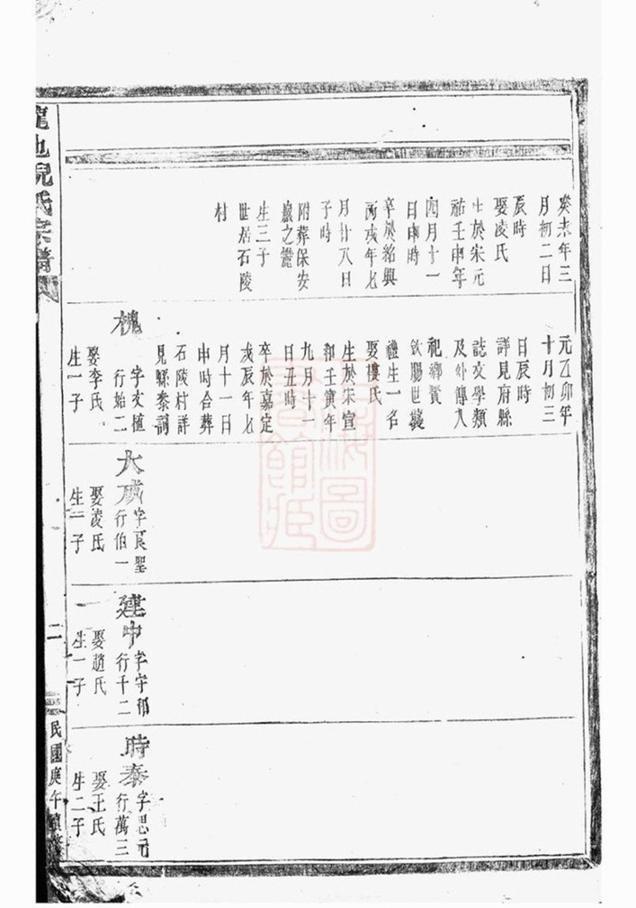 癸未年三
月初二日
辰時
娶凌氏
生於宋元
祐壬申年
四月十一
日申時
卒於紹興
丙戌年七
月廿八日
子時
附葬保安
嚴之麓
生三子
世居石陵
村
元乙卯年
十月初三
日辰時
詳見府縣
誌文學類
及外傳入
祀鄉賢
欽賜世襲
禮生一名
娶樓氏
生於宋宣
和壬寅年
九月十一
日丑時
卒於嘉定
戊辰年七
月十一日
申時合葬
石陵村詳
見縣泰詞
槐
字文植
行始二
娶李氏
生一子
大成
字良聖
行伯一
娶凌氏
生一子
建中
字守邦
行千二
娶趙氏
生一子
時泰
字思元
行萬三
娶王氏
生二子
龍池倪氏宗譜
二
民國庚午